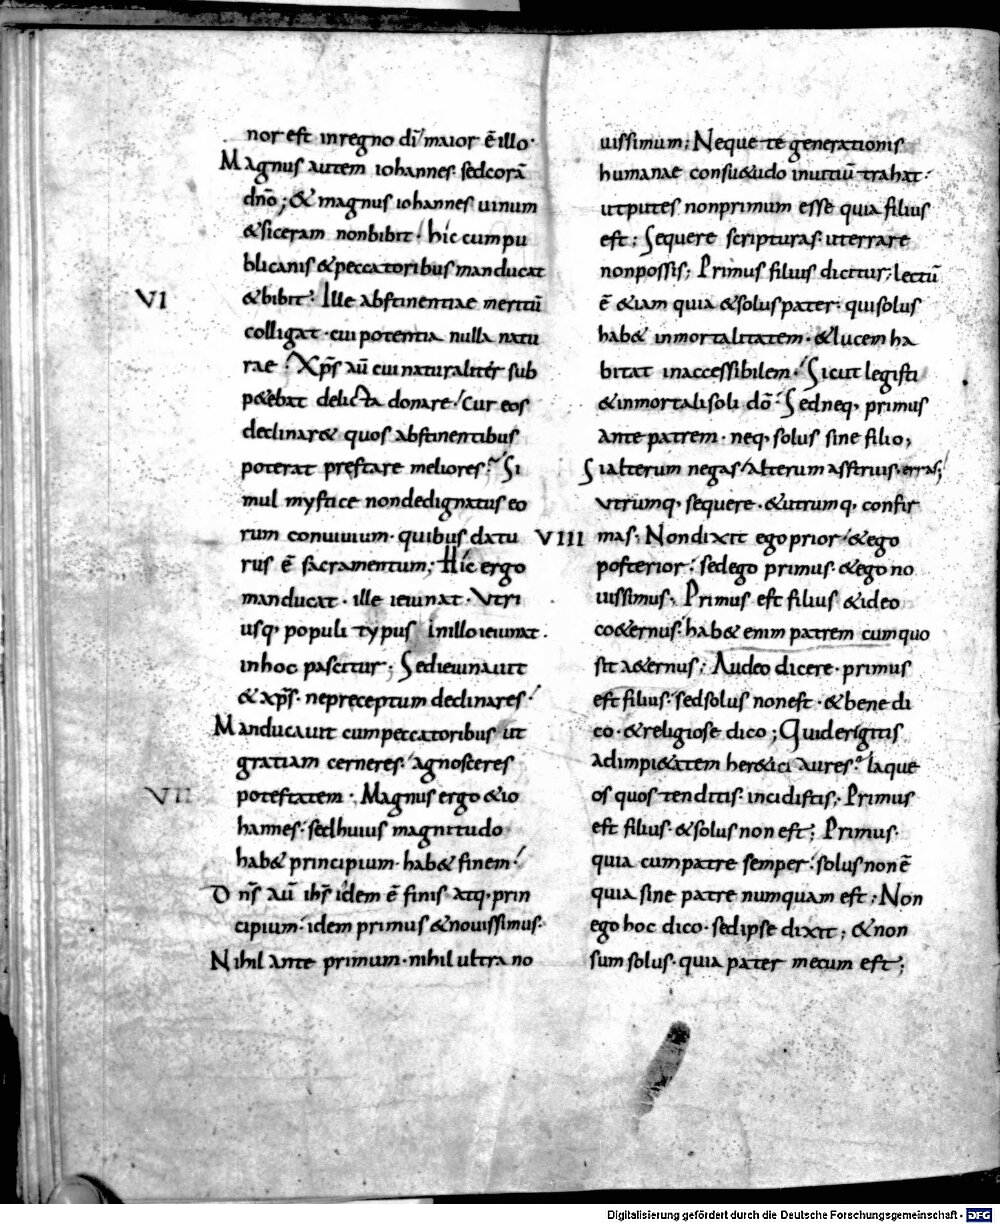 nor est inregno dī maior ē illo·
Magnus autem iohannes· sedcorā
dn̄o; & magnus iohannes uinum
& siceram nonbibit· hic cum pu
blicanis & peccatoribus manducat
VI
& bibit· Ille abstinentiae meritū
colligat· cui potentia nulla natu
rae· Xp̄s aū cui naturaliter sub
p&ebat delicta donare· cur eos
declinar& quos abstinentibus
poterat prestare meliores? Si
mul mystice nondedignatus eo
rum conuiuium· quibus datu
rus ē sacramentum; Hic ergo
manducat· ille ieiunat· Vtri
usq; populi typus· Inillo ieiunat·
inhoc pascitur; Sed ieiunauit
& xp̄s· nepręceptum declinares·
Manducauit cumpeccatoribus ut
gratiam cerneres· agnosceres
VII
potestatem· Magnus ergo & io
hannes· sed huius magnitudo
hab& principium· hab& finem·
Dn̄s aū ih̄s idem ē finis· atq· prin
cipium· idem primus & nouissimus·
Nihil ante primum· nihil ultra no
uissimum; Neque te generationis
humanae consu&udo inuitiū trahat·
utputes nonprimum esse quia filius
est; Sequere scripturas· uterrare
nonpossis; Primus filius dicitur; lectū
ē &iam quia & solus pater· qui solus
hab& inmortalitatem· & lucem ha
bitat inaccessibilem· Sicut legisti
& inmortali soli dō· Sed neq; primus
ante patrem· neq; solus sine filio;
Si alterum negas· alterum asstruis· erras;
Vtrumq; sequere· & utrumq; confir
VIII
mas; Non dixit ego prior· & ego
posterior· sed ego primus· & ego no
uissimus; Primus est filius & ideo
co&ernus· hab& enim patrem cum quo
sit a&ernus; Audeo dicere· primus
est filius· sed solus non est· & bene di
co· & religiose dico; Quid erigitis
ad impi&atem her&ici aures? laque
os quos tenditis· incidistis; Primus
est filius· & solus non est; Primus·
quia cum patre semper· solus non ē
quia sine patre numquam est; Non
ego hoc dico· sed ipse dixit; & non
sum solus· quia pater mecum est;
Digitalisierung gefördert durch die Deutsche Forschungsgemeinschaft - DFG